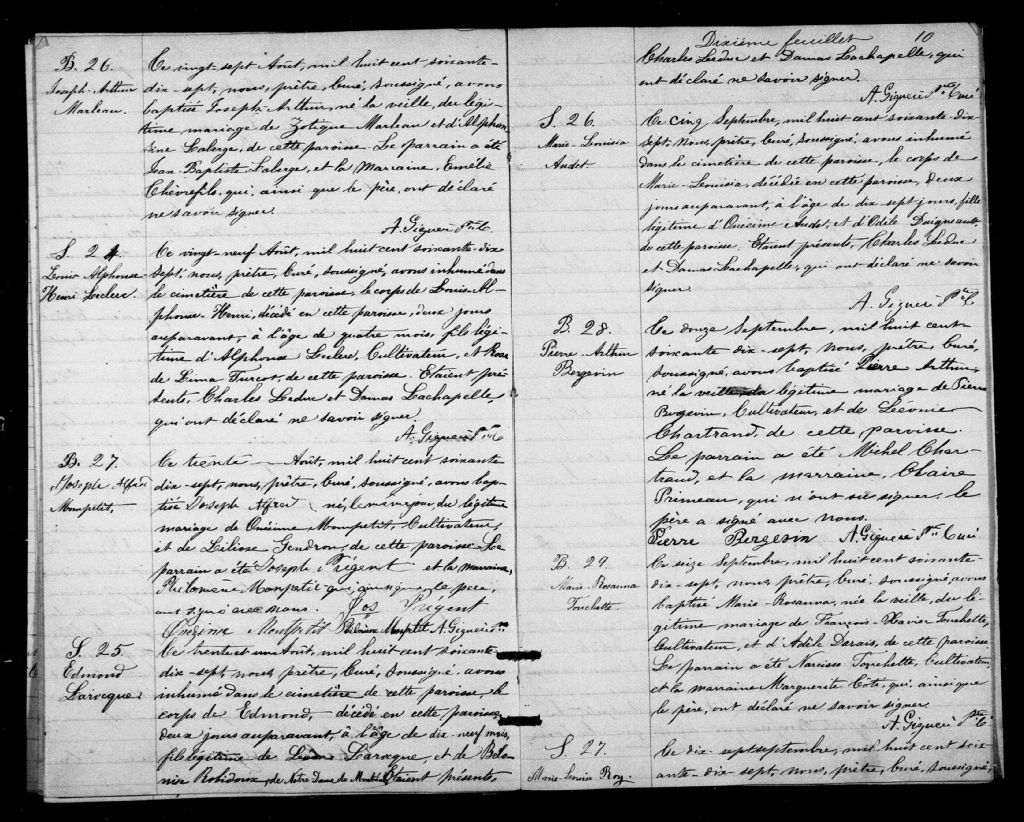 B. 26.
Joseph-Arthur
Marleau.
Ce vingt-sept Août, mil huit cent soixante-
dix-sept, nous, prêtre, Curé, soussigné, avons
baptisé Joseph-Arthur, né la veille, du légi-
time mariage de Zotique Marleau et d'Alphon-
sine Laberge, de cette paroisse. Le parrain a été
Jean-Baptiste Laberge, et la Marraine, Emélie
Chèvrefils, qui, ainsi que le père, ont déclaré
ne savoir signer.
A. Giguère Ptre C.
S. 24.
Louis Alphonse
Henri Leclerc.
Ce vingt-neuf Août, mil huit cent soixante dix
sept, nous, prêtre, Curé, soussigné, avons inhumé dans
le cimetière de cette paroisse, le corps de Louis-Al-
phonse-Henri, décédé en cette paroisse, deux jours
auparavant, à l'âge de quatre mois, fils légi-
time d'Alphonse Leclerc, Cultivateur, et Rose
de Lima Turcot, de cette paroisse. Etaient pré-
sents, Charles Leduc et Damas Lachapelle,
qui ont déclaré ne savoir signer.
A. Giguère Ptre C
B. 27.
Joseph Alfred
Mompetit,
Ce trente Août, mil huit cent soixante
dix-sept, nous, prêtre, Curé, soussigné, avons bap-
tisé Joseph Alfred né, le même jour, du légitime
mariage de Onésime Mompetit, Cultivateur,
et de Gendron, de cette paroisse. Le
parrain a été Joseph Prégent et la marraine,
Philomène Monpetit qui, ainsi que le père,
ont signé avec nous. Jos Prégent
Onésime Montpetit Monpetit A. Giguère Ptre
S. 25.
Edmond
Larocque
Ce trente et un Août, mil huit cent soixante-
dix-sept, nous, prêtre, Curé, soussigné, avons
inhumé dans le cimetière de cette paroisse, le
corps de Edmond, décédé en cette paroisse,
deux jours auparavant, à l'âge de dix-neuf mois,
fils légitime de Larocque, et de
Robidoux, de Notre Dame de Montréal, Etaient présents,
Dixième feuillet 10
Charles Leduc et Damas Lachapelle, qui
ont déclaré ne savoir signer.
A. Giguère Ptre Curé
S. 26.
Marie-Louisia
Audet.
Ce cinq Septembre, mil huit cent soixante dix
sept, Nous, prêtre, Curé, soussigné, avons inhumé
dans le cimetière de cette paroisse, le corps de
Marie-Louisia, décédée en cette paroisse, deux
jours auparavant, à l'âge de dix sept jours, fille
légitime d'Onésime Audet, et d'Odile Daignault
de cette paroisse. Etaient présents, Charles Leduc
et Damas Lachapelle, qui ont déclaré ne savoir
signer.
A. Giguère Ptre C.
B. 28.
Pierre Arthur
Bergevin
Ce douze Septembre, mil huit cent
soixante dix-sept, Nous, prêtre, Curé,
soussigné, avons baptisé Pierre Arthur,
né la veille du légitime mariage de Pierre
Bergevin, Cultivateur, et de Léonie
Chartrand, de cette paroisse.
Le parrain a été Michel Char-
trand, et la marraine, Claire
Primeau, qui n'ont su signer, le
père a signé avec nous.
Pierre Bergevin A. Giguère Ptre Curé
B. 29.
Marie-Rosanna
Touchette.
Ce seize Septembre, mil huit cent soixante-
dix-sept, nous, prêtre, Curé, soussigné, avons
baptisé Marie-Rosanna, née la veille, du lé-
gitime mariage de François-Xavier Touchette,
Cultivateur, et d'Adèle Darais, de cette paroisse.
Le parrain a été Narcisse Touchette, Cultivateur,
et la marraine Marguerite Côté, qui, ainsi que
le père, ont déclaré ne savoir signer.
A. Giguère Ptre C
S. 27.
Marie-Louise Roy.
Ce dix-sept septembre, mil huit cent soix-
ante-dix-sept, nous, prêtre, Curé, soussigné,